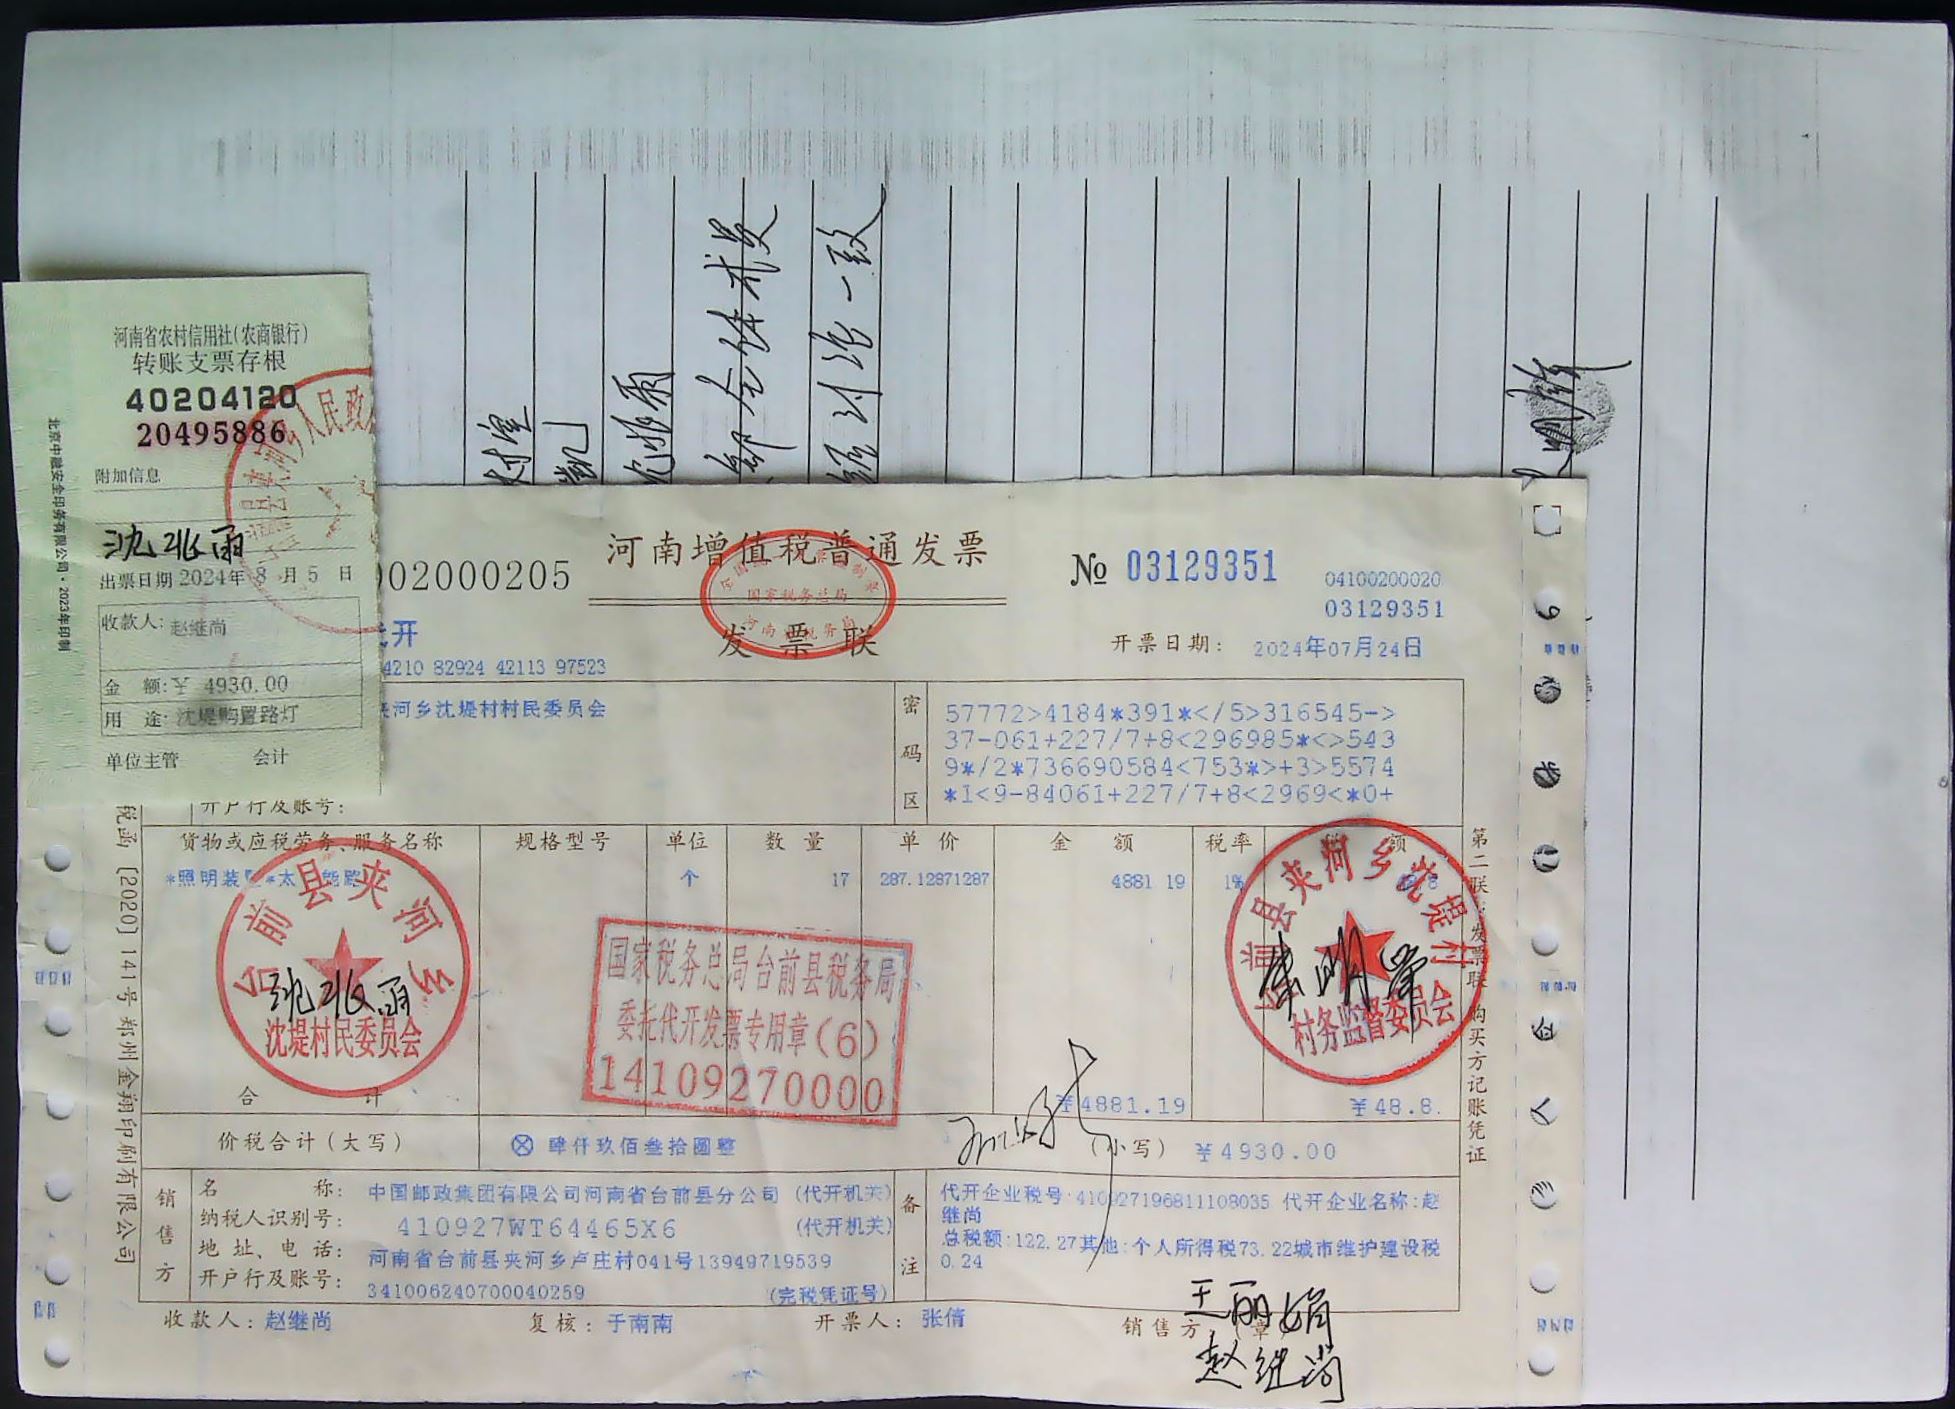 河南省农村信用社(农商银行)
转账支票存根
40204120
20495886
附加信息
沈兆雨
出票日期 2024年 8 月 5 日
收款人: 赵继尚
金 额:￥ 4930.00
用 途: 沈堤购置路灯
单位主管 会计
北京中融安全印务有限公司·2023年印制
村室
全体村民
讨论一致
河南增值税普通发票
002000205
№ 03129351
04100200020
03129351
发票联
国家税务总局
开票日期: 2024年07月24日
代开
4210 82924 42113 97523
夹河乡沈堤村村民委员会
开户行及账号:
密码区
57772>4184*391*</5>316545->
37-061+227/7+8<296985*<>543
9*/2*736690584<753*>+3>5574
*1<9-84061+227/7+8<2969<*0+
货物或应税劳务、服务名称 规格型号 单位 数量 单价 金额 税率 税额
*照明装 *太 能路 个 17 287.12871287 4881 19 1%
台前县夹河乡
沈堤村民委员会
国家税务总局台前县税务局
委托代开发票专用章(6)
14109270000
前县夹河乡沈堤村
村务监督委员会
合 计 ￥4881.19 ￥48.8
价税合计(大写) ⊗ 肆仟玖佰叁拾圆整 (小写) ￥4930.00
销售方
名 称: 中国邮政集团有限公司河南省台前县分公司 (代开机关)
纳税人识别号: 410927WT64465X6 (代开机关)
地 址、电 话: 河南省台前县夹河乡卢庄村041号13949719539
开户行及账号: 341006240700040259 (完税凭证号)
备注
代开企业税号:410927196811108035 代开企业名称:赵
继尚
总税额:122.27其他:个人所得税73.22城市维护建设税
0.24
收款人: 赵继尚 复核: 于南南 开票人: 张倩 销售方:(章)
王丽娟
赵继尚
税函 [2020] 141号郑州金翔印刷有限公司
第二联:发票联 购买方记账凭证